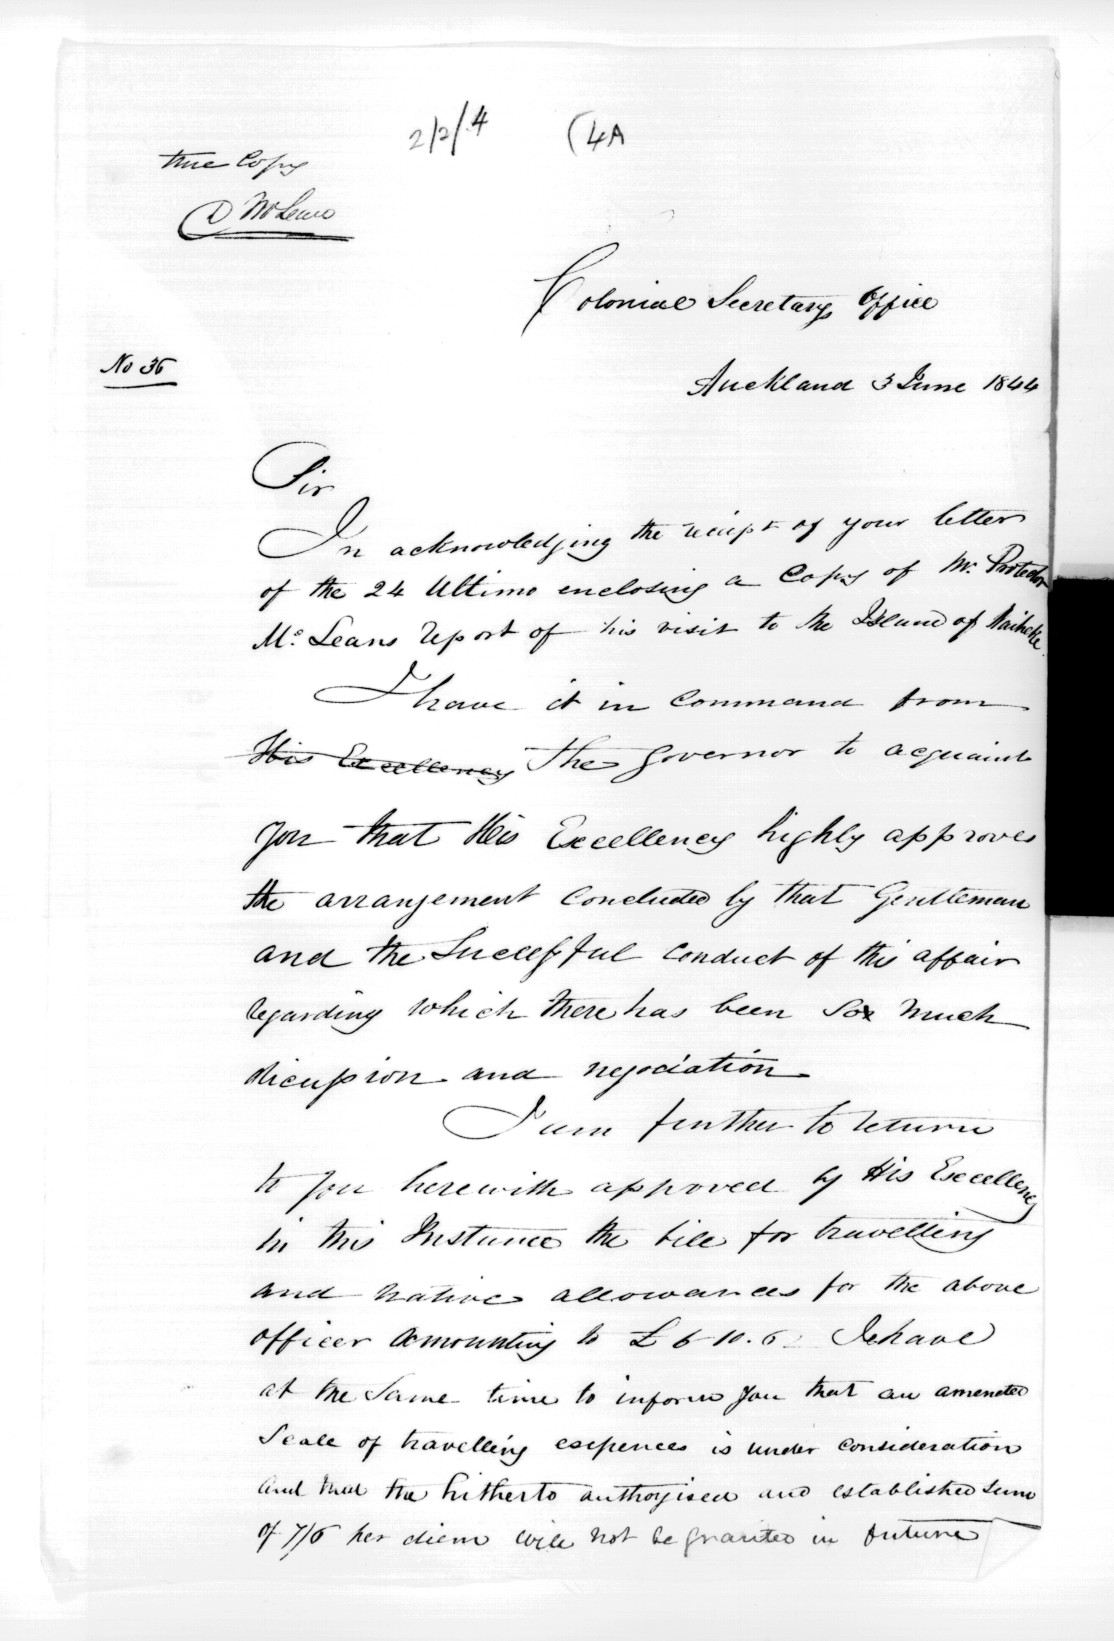 2/2/4 (4A
true Copy
D McLean
Colonial Secretarys Office
No 36
Auckland 3 June 1844
Sir
In acknowledging the reciept of your letter
of the 24 Ultimo enclosing a Copy of Mr. Protector
Mc Leans report of his visit to the Island of Waiheke.
I have it in command from
His Excellency The Governor to acquaint
you that His Excellency highly approves
the arrangement concluded by that Gentleman
and the Successful conduct of this affair
regarding which there has been so much
dicussion and negociation
I am further to return
to you herewith approved by His Excellency
in this Instance the bill for travelling
and native allowances for the above
officer amounting to £ 6-10.6 I have
at the Same time to inform you that an amended
Scale of travelling expences is under consideration
and that the hitherto authorised and established sum
of 7/6 per diem will not be granted in future